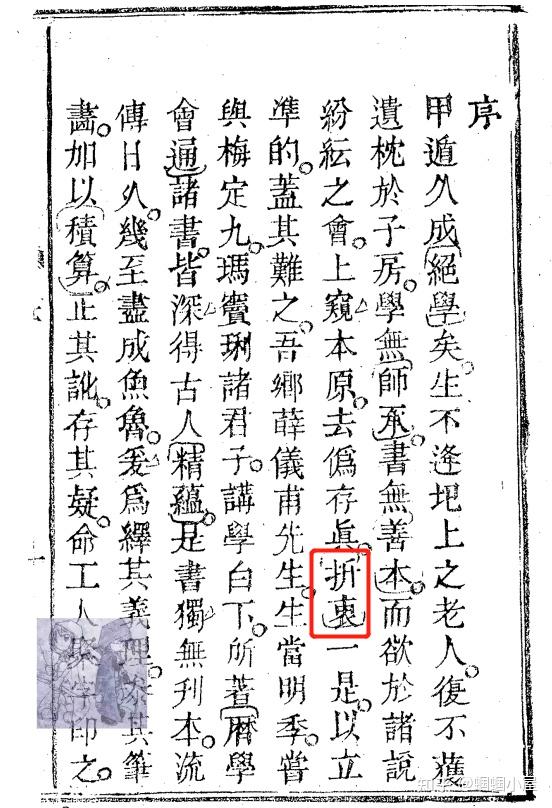 序
甲遁久成絕學矣。生不逢圯上之老人。復不獲
遺枕於子房。學無師承。書無善本。而欲於諸說
紛紜之會。上窺本原。去僞存眞。折衷一是。以立
凖的。蓋其難之。吾鄉薛儀甫先生。生當明季。嘗
與梅定九。瑪竇琍諸君子。講學白下。所著曆學
會通諸書。皆深得古人精蘊。是書獨無刊本。流
傳日久。幾至盡成魚魯。爰爲繹其義理。參其筆
畫。加以積算。正其訛。存其疑。命工人聚字印之。
知乎 @蝈蝈小屋